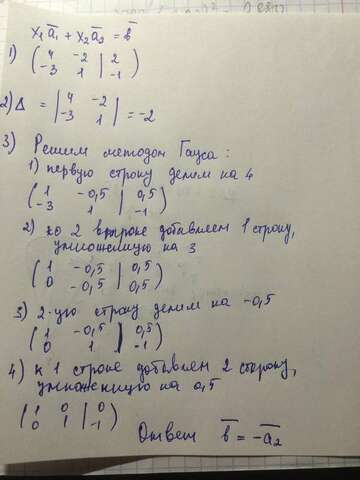 x₁ a̅₁ + x₂ a̅₂ = b̅
1) ( 4 -2 | 2
-3 1 | -1 )
2) Δ = | 4 -2
-3 1 | = -2
3) Решим методом Гауса:
1) первую строку делим на 4
( 1 -0,5 | 0,5
-3 1 | -1 )
2) ко 2 строке добавляем 1 строку,
умноженную на 3
( 1 -0,5 | 0,5
0 -0,5 | 0,5 )
3) 2-ую строку делим на -0,5
( 1 -0,5 | 0,5
0 1 | -1 )
4) к 1 строке добавляем 2 строку,
умноженную на 0,5
( 1 0 | 0
0 1 | -1 )
Ответ b̅ = -a̅₂